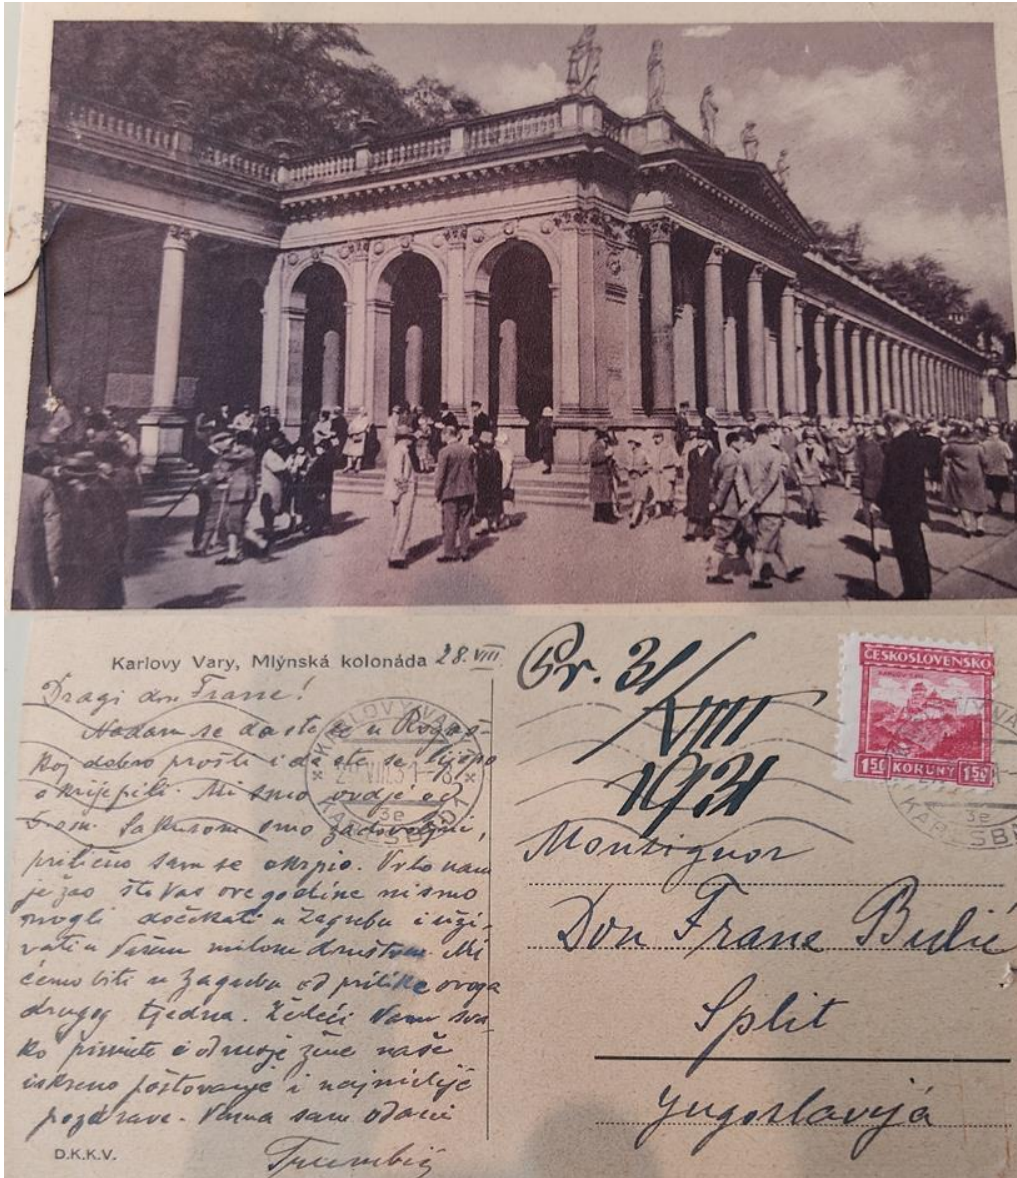 Karlovy Vary, Mlýnská kolonáda 28.VIII
Dragi don Frane!
Nadam se da ste se u Rogaš-
koj dobro prošli i da ste se lijepo
okrijepili. Mi smo ovdje od
Sa kurom smo zadovoljni,
prilično sam se Vrlo nam
je žao što Vas ove godine nismo
mogli dočekati u Zagrebu i uži-
vati u Vašem milom društvu. Mi
ćemo biti u Zagrebu od prilike ovoga
drugog tjedna. Želeći Vam sva-
ko primite i od moje žene naše
iskreno poštovanje i najmilije
pozdrave. Vama sam odani
Trumbić
D.K.K.V.
Pr. 31/
VIII
1931
ČESKOSLOVENSKO
1 50 KORUNY 1 50
KARLOVY VARY
29.VIII.31-8
3e
KARLSBAD 1
KARLSBAD
3e
Monsignor
Don Frane Bulić
Split
Jugoslavija